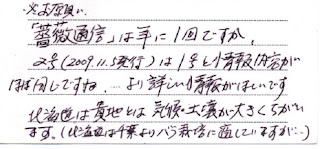 ※お尋ね
「薔薇通信」は年に1回ですか。
2号(2009.11.5発行)は1号と情報内容が
ほぼ同じですね.…より詳しい情報がほしいです
北海道は貴地とは気候・土壌が大きくちがい
ます。(北海道は千葉よりバラ栽培に適していますが…)